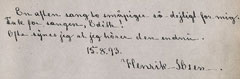 En aften sang to småpiger så dejligt for mig.
Tak for sangen, Edith!
Ofte synes jeg at jeg hører den endnu.
15-8.93.
Henrik Ibsen.